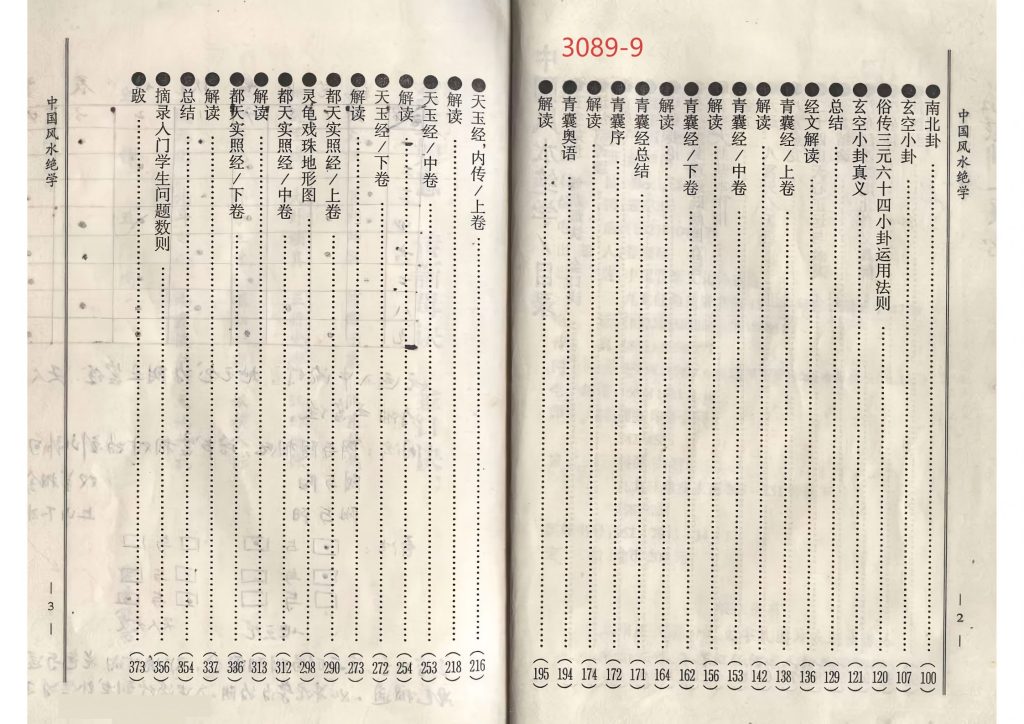 3089-9
中国风水绝学
— 2 —
●南北卦……(100)
●玄空小卦……(107)
●俗传三元六十四小卦运用法则……(120)
●玄空小卦真义……(121)
●总结……(129)
●经文解读……(136)
●青囊经/上卷……(138)
●解读……(142)
●青囊经/中卷……(153)
●解读……(156)
●青囊经/下卷……(162)
●解读……(164)
●青囊经总结……(171)
●青囊序……(172)
●解读……(174)
●青囊奥语……(194)
●解读……(195)
●天玉经,内传/上卷……(216)
●解读……(218)
●天玉经/中卷……(253)
●解读……(254)
●天玉经/下卷……(272)
●解读……(273)
●都天实照经/上卷……(290)
●灵龟戏珠地形图……(298)
●都天实照经/中卷……(312)
●解读……(313)
●都天实照经/下卷……(336)
●解读……(337)
●总结……(354)
●摘录入门学生问题数则……(356)
●跋……(373)
中国风水绝学
— 3 —